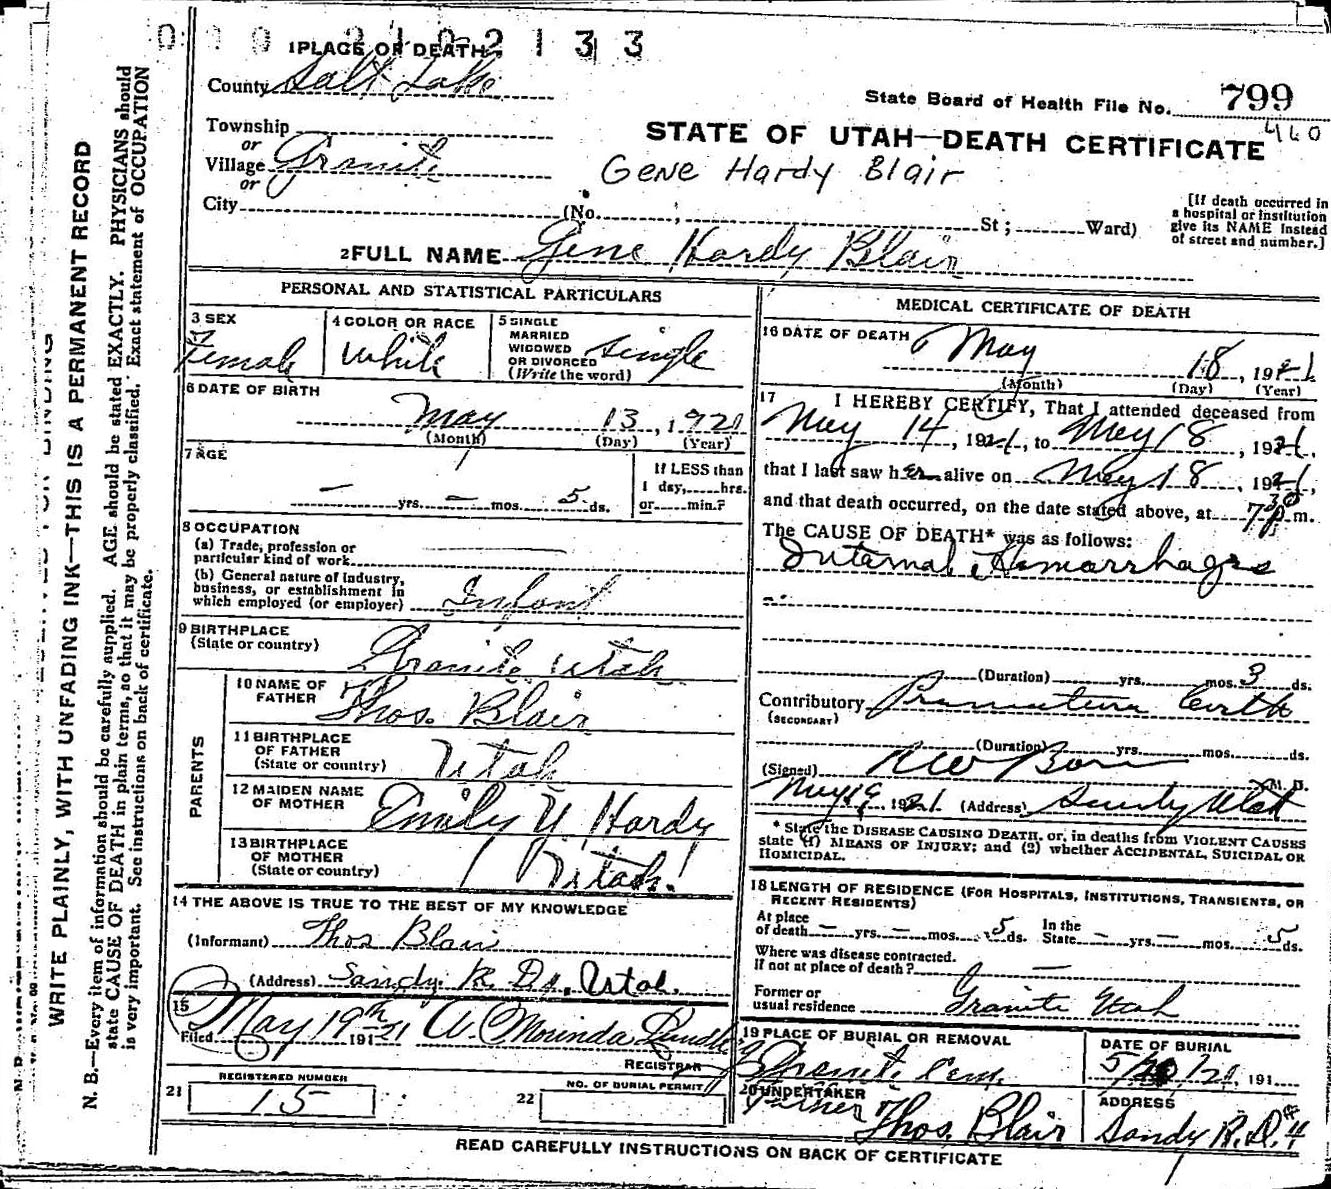 1 PLACE OF DEATH.
County Salt Lake
State Board of Health File No. 799
460
Township
or
Village Granite
or
City
STATE OF UTAH—DEATH CERTIFICATE
Gene Hardy Blair
(No. ; St; Ward)
[If death occurred in
a hospital or institution
give its NAME instead
of street and number.]
2 FULL NAME Gene Hardy Blair
PERSONAL AND STATISTICAL PARTICULARS
3 SEX
Female
4 COLOR OR RACE
White
5 SINGLE
MARRIED
WIDOWED
OR DIVORCED
(Write the word)
Single
6 DATE OF BIRTH
May 13, 1921
(Month) (Day) (Year)
7 AGE
— yrs. — mos. 5 ds.
If LESS than
1 day, hrs.
or min.?
8 OCCUPATION
(a) Trade, profession or
particular kind of work
(b) General nature of Industry,
business, or establishment in
which employed (or employer) Infant
9 BIRTHPLACE
(State or country) Granite Utah
PARENTS
10 NAME OF
FATHER Thos. Blair
11 BIRTHPLACE
OF FATHER
(State or country) Utah
12 MAIDEN NAME
OF MOTHER Emily U. Hardy
13 BIRTHPLACE
OF MOTHER
(State or country) Utah.
14 THE ABOVE IS TRUE TO THE BEST OF MY KNOWLEDGE
(Informant) Thos Blair
(Address) Sandy. R. D. , Utah.
15
Filed May 19th 1921 A. Morinda
REGISTRAR
21 REGISTERED NUMBER
15
22 NO. OF BURIAL PERMIT
MEDICAL CERTIFICATE OF DEATH
16 DATE OF DEATH
May 18, 1921
(Month) (Day) (Year)
17 I HEREBY CERTIFY, That I attended deceased from
May 14, 1921, to May 18, 1921,
that I last saw her alive on May 18, 1921,
and that death occurred, on the date stated above, at 730 p m.
The CAUSE OF DEATH* was as follows:
Internal Hemorrhages
(Duration) yrs. mos. 3 ds.
Contributory Premature birth
(SECONDARY)
(Duration) yrs. mos. ds.
(Signed) M. D.
May 19, 1921 (Address) Sandy Utah
* State the DISEASE CAUSING DEATH, or, in deaths from VIOLENT CAUSES
state (1) MEANS OF INJURY; and (2) whether ACCIDENTAL, SUICIDAL OR
HOMICIDAL.
18 LENGTH OF RESIDENCE (FOR HOSPITALS, INSTITUTIONS, TRANSIENTS, OR
RECENT RESIDENTS)
At place
of death — yrs. — mos. 5 ds. In the
State — yrs. — mos. 5 ds.
Where was disease contracted.
If not at place of death? —
Former or
usual residence Granite Utah
19 PLACE OF BURIAL OR REMOVAL
Granite Cem.
DATE OF BURIAL
5/20/21, 191
20 UNDERTAKER
Father Thos. Blair
ADDRESS
Sandy R.D. #4
READ CAREFULLY INSTRUCTIONS ON BACK OF CERTIFICATE
WRITE PLAINLY, WITH UNFADING INK—THIS IS A PERMANENT RECORD
N. B.—Every item of information should be carefully supplied. AGE should be stated EXACTLY. PHYSICIANS should
state CAUSE OF DEATH in plain terms, so that it may be properly classified. Exact statement of OCCUPATION
is very important. See instructions on back of certificate.